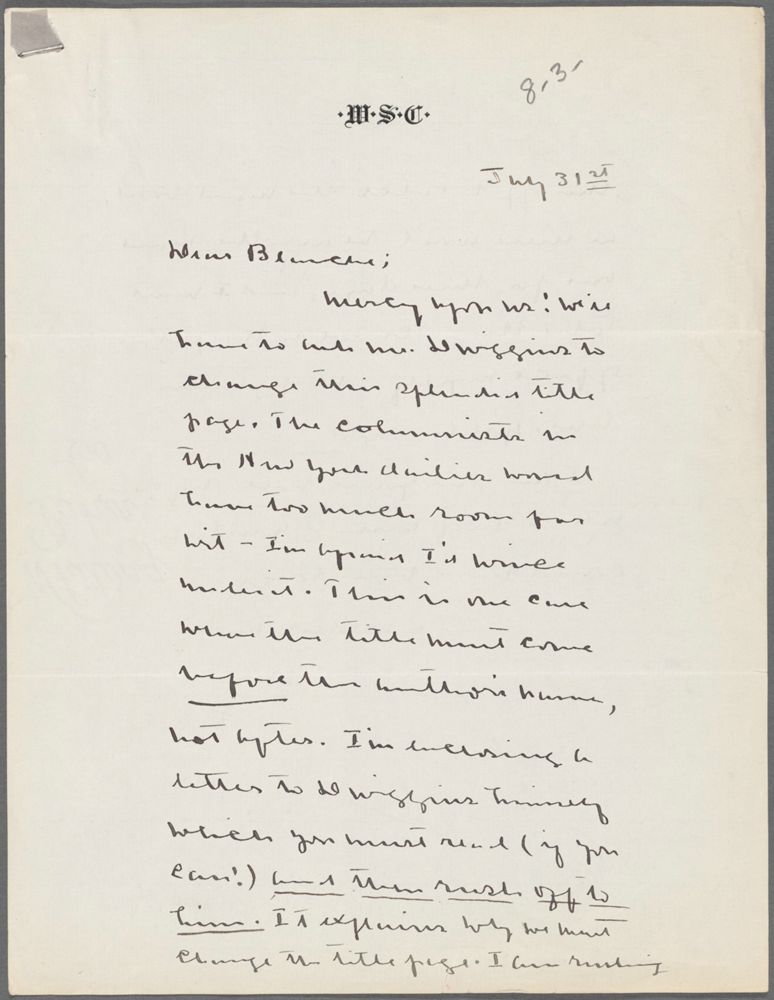 8-3-
·W·S·C·
July 31st
Dear Blanche;
Mercy upon us! We'll
have to ask Mr. Dwiggins to
change this splendid title
page. The columnists in
the New York dailies would
have too much room for
wit - I'm afraid I'd wince
under it. This is one case
where the title must come
before the author's name,
not after. I'm enclosing a
letter to Dwiggins himself
which you must read (if you
can!) and then rush off to
him. It explains why we must
change the title page. I am rushing